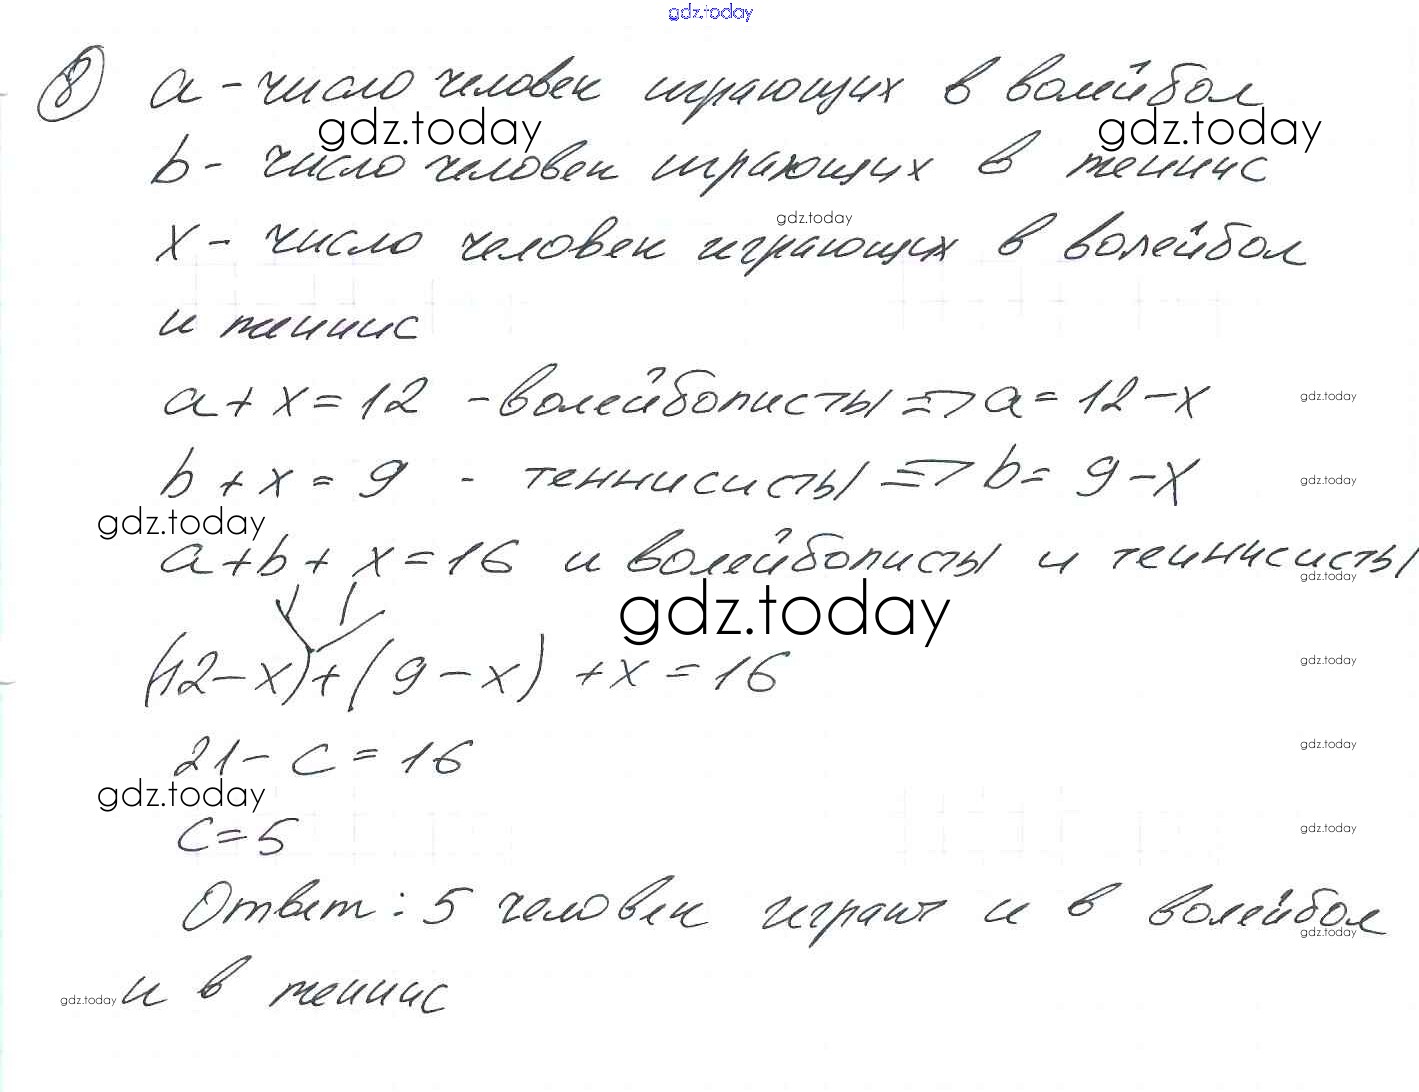 gdz.today
8 a - число человек играющих в волейбол
gdz.today gdz.today
b - число человек играющих в теннис
gdz.today
x - число человек играющих в волейбол
и теннис
a + x = 12 - волейболисты => a = 12 - x gdz.today
b + x = 9 - теннисисты => b = 9 - x gdz.today
gdz.today
a + b + x = 16 и волейболисты и теннисисты
gdz.today
gdz.today
(12 - x) + (9 - x) + x = 16 gdz.today
21 - c = 16 gdz.today
gdz.today
c = 5 gdz.today
Ответ: 5 человек играют и в волейбол
gdz.today
gdz.today и в теннис